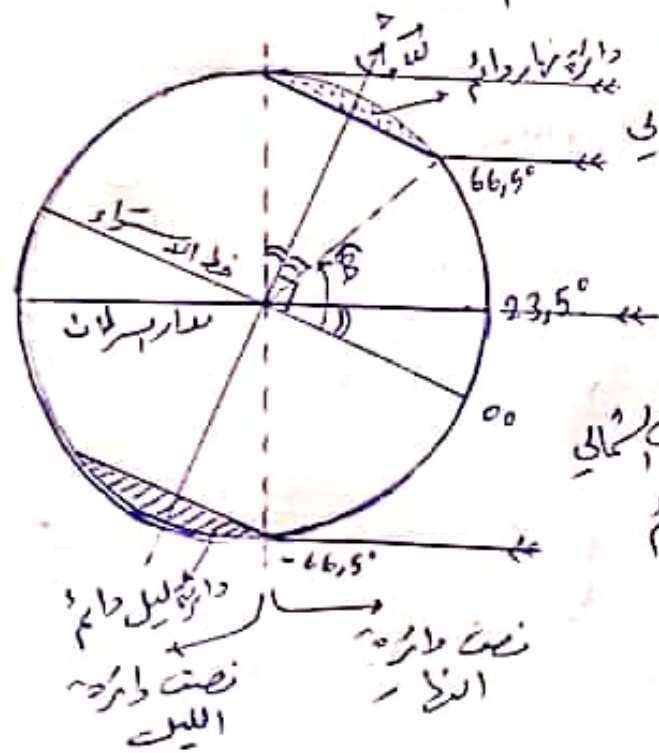 دائرة نهار دائم
66,5°
خط الاستواء
β
23,5°
مدار السرطان
0°
الشمالي
-66,5°
دائرة ليل دائم
نصف دائرة
النهار
نصف دائرة
الليل